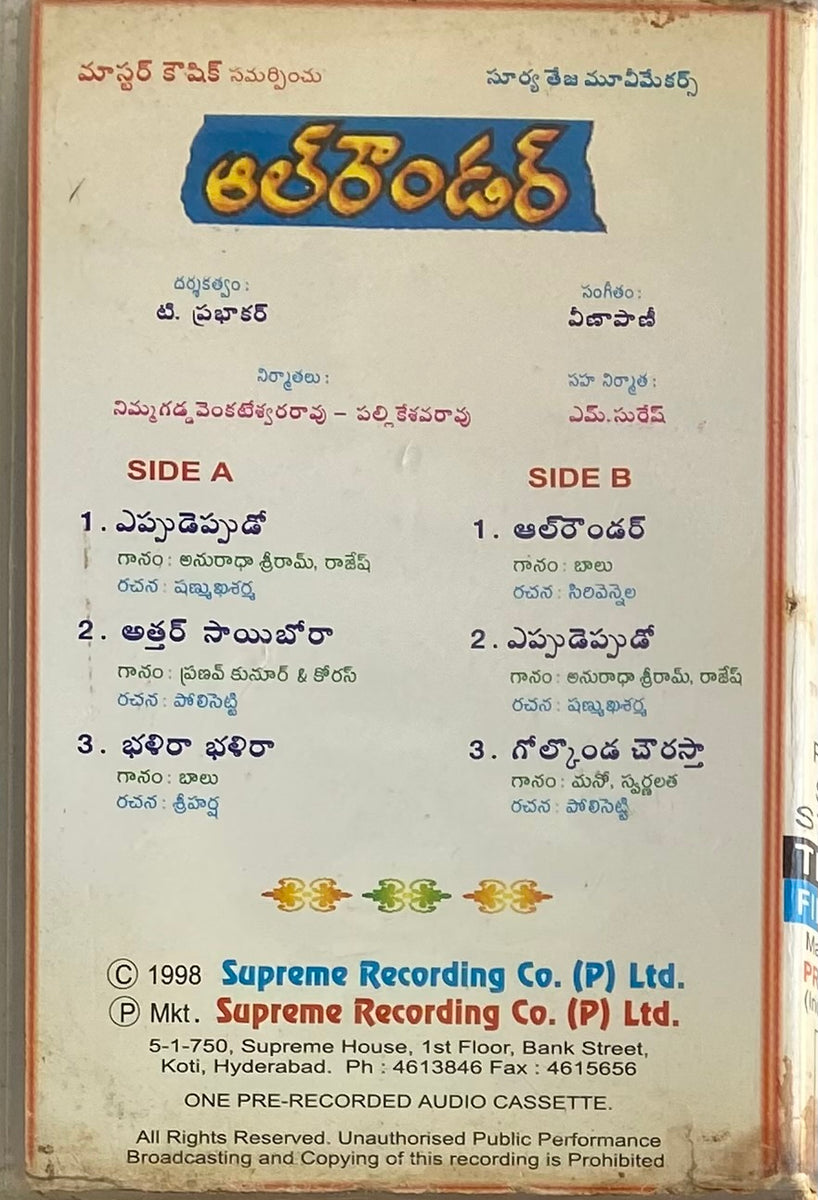 మాస్టర్ కౌషిక్ సమర్పించు
సూర్య తేజ మూవీమేకర్స్
ఆల్‌రౌండర్
దర్శకత్వం :
టి. ప్రభాకర్
సంగీతం :
వీణాపాణీ
నిర్మాతలు :
నిమ్మగడ్డ వెంకటేశ్వరరావు – పల్లి కేశవరావు
సహ నిర్మాత :
ఎమ్.సురేష్
SIDE A
1. ఎప్పుడెప్పుడో
గానం : అనురాధా శ్రీరామ్, రాజేష్
రచన : షణ్ముఖశర్మ
2. అత్తర్ సాయిబోరా
గానం : ప్రణవ్ కుమార్ & కోరస్
రచన : పోలిసెట్టి
3. భళిరా భళిరా
గానం : బాలు
రచన : శ్రీహర్ష
SIDE B
1. ఆల్‌రౌండర్
గానం : బాలు
రచన : సిరివెన్నెల
2. ఎప్పుడెప్పుడో
గానం : అనురాధా శ్రీరామ్, రాజేష్
రచన : షణ్ముఖశర్మ
3. గోల్కొండ చౌరస్తా
గానం : మనో, స్వర్ణలత
రచన : పోలిసెట్టి
Ⓒ 1998 Supreme Recording Co. (P) Ltd.
Ⓟ Mkt. Supreme Recording Co. (P) Ltd.
5-1-750, Supreme House, 1st Floor, Bank Street,
Koti, Hyderabad. Ph : 4613846 Fax : 4615656
ONE PRE-RECORDED AUDIO CASSETTE.
All Rights Reserved. Unauthorised Public Performance
Broadcasting and Copying of this recording is Prohibited